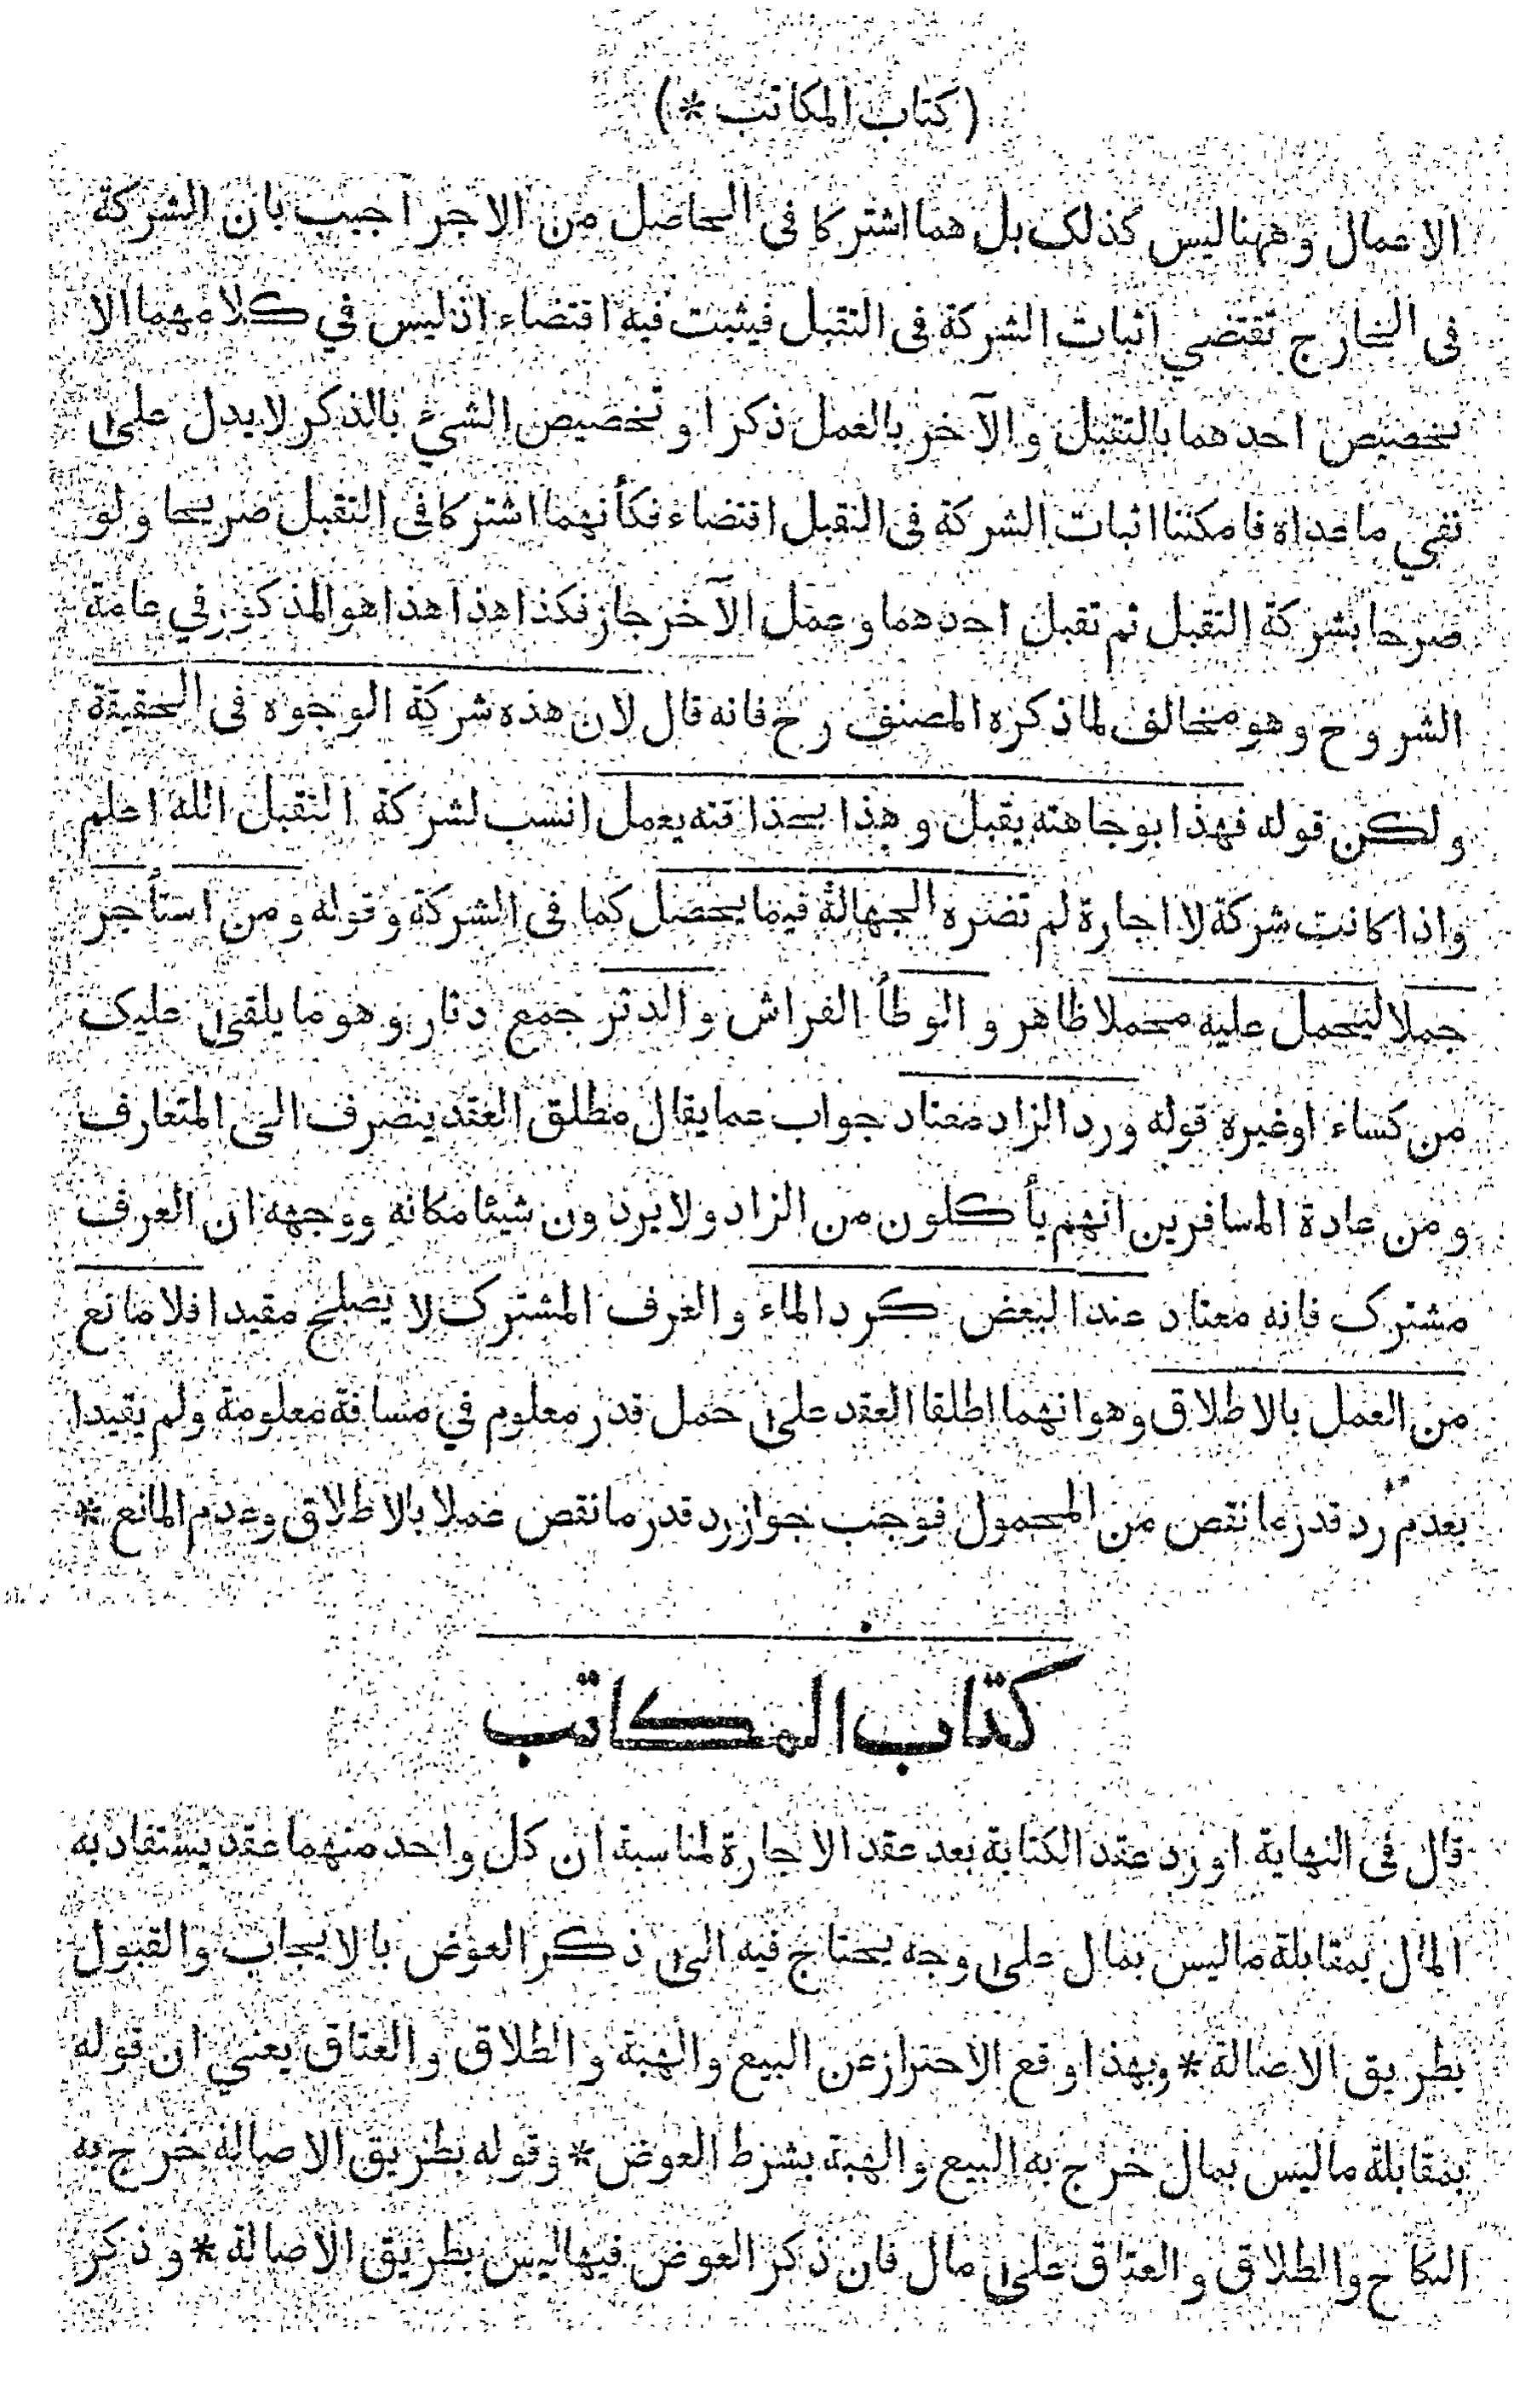 ( كتاب المكاتب * )
الاعمال وههنا ليس كذلك بل هما اشتركا في الحاصل من الاجر اجيب بان الشركة
في الخارج تقتضي اثبات الشركة في التقبل فيثبت فيه اقتضاء اذ ليس في كلامهما الا
تخصيص احدهما بالتقبل والآخر بالعمل ذكرا وتخصيص الشيء بالذكر لا يدل على
نفي ما عداه فامكننا اثبات الشركة في التقبل اقتضاء فكأنهما اشتركا في التقبل صريحا ولو
صرحا بشركة التقبل ثم تقبل احدهما وعمل الآخر جاز فكذا هذا هذا هو المذكور في عامة
الشروح وهو مخالف لما ذكره المصنف رح فانه قال لان هذه شركة الوجوه في الحقيقة
ولكن قوله فهذا بوجاهته يقبل وهذا بحذاقته يعمل انسب لشركة التقبل الله اعلم
واذا كانت شركة لا اجارة لم تضره الجهالة فيما يحصل كما في الشركة وقوله ومن استأجر
جملا ليحمل عليه محملا ظاهر والوطأ الفراش والدثر جمع دثار وهو ما يلقى عليك
من كساء اوغيره قوله ورد الزاد معتاد جواب عما يقال مطلق العقد ينصرف الى المتعارف
ومن عادة المسافرين انهم يأكلون من الزاد ولا يردون شيئا مكانه ووجهه ان العرف
مشترك فانه معتاد عند البعض كرد الماء والعرف المشترك لا يصلح مقيدا فلا مانع
من العمل بالاطلاق وهو انهما اطلقا العقد على حمل قدر معلوم في مسافة معلومة ولم يقيدا
بعدم رد قدر ما نقص من المحمول فوجب جواز رد قدر ما نقص عملا بالاطلاق وعدم المانع *
كتاب المكاتب
قال في النهاية اورد عقد الكتابة بعد عقد الاجارة لمناسبة ان كل واحد منهما عقد يستفاد به
المال بمقابلة ما ليس بمال على وجه يحتاج فيه الى ذكر العوض بالايجاب والقبول
بطريق الاصالة * وبهذا وقع الاحتراز عن البيع والهبة والطلاق والعتاق يعني ان قوله
بمقابلة ما ليس بمال خرج به البيع والهبة بشرط العوض * وقوله بطريق الاصالة خرج به
النكاح والطلاق والعتاق على مال فان ذكر العوض فيها ليس بطريق الاصالة * وذكر